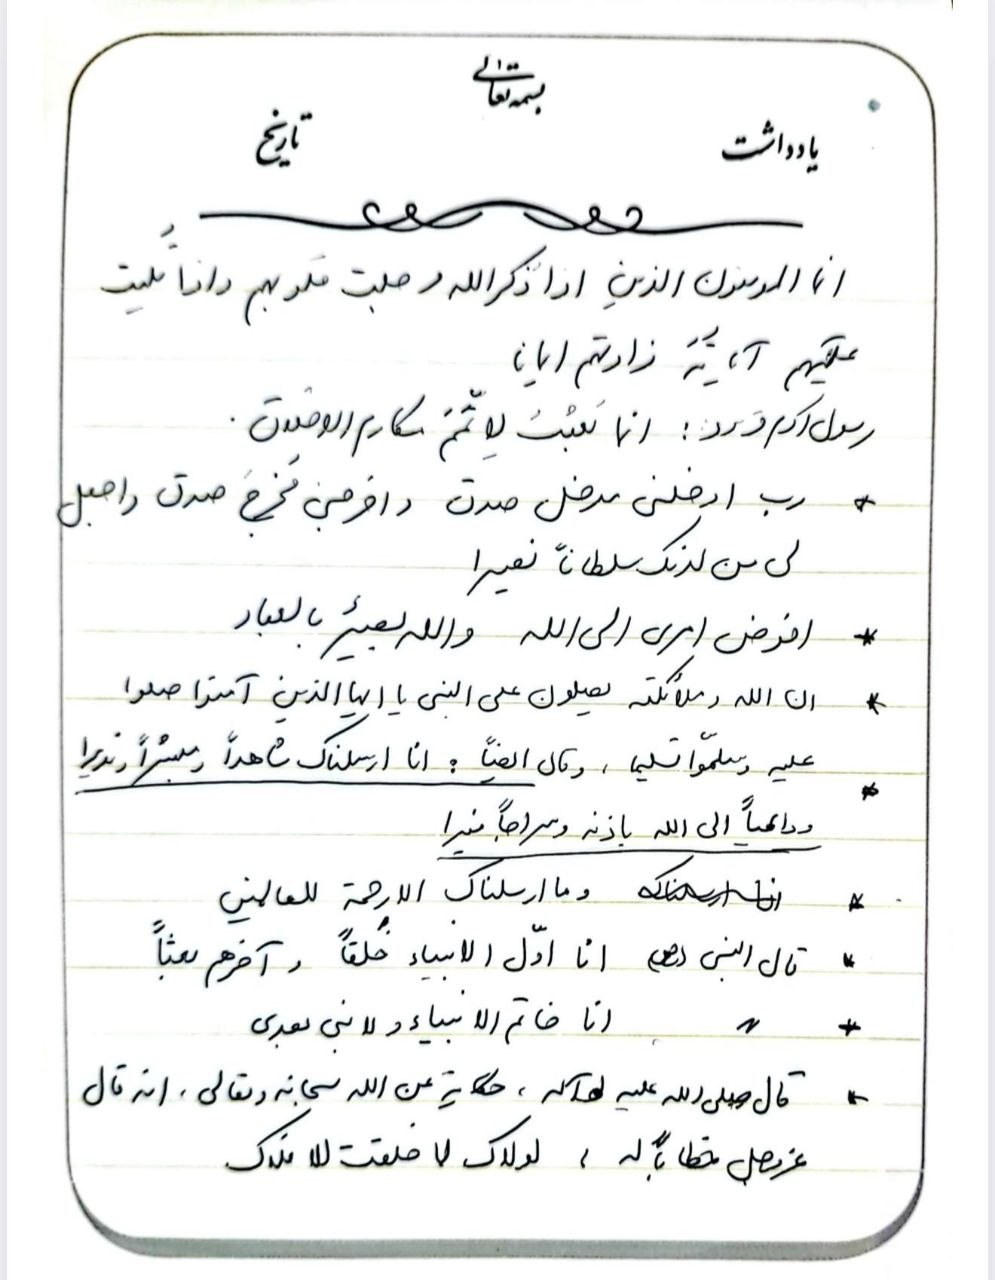 بسمه تعالی
یادداشت
تاریخ
انما المومنون الذین اذا ذُکر الله وجلت قلوبهم واذا تُلیت
علیهم آیاتُهُ زادتهم ایمانا
رسول اکرم فرمود : انما بُعِثْتُ لِاُتَمِّمَ مکارم الاخلاق .
* رب ادخلنی مدخل صدق واخرجنی مُخرجَ صدق واجعل
لی من لدنک سلطاناً نصیرا
* افوض امری الی الله والله بصیرٌ بالعباد
* ان الله وملائکته یصلون علی النبی یا ایها الذین آمنوا صلوا
علیه وسلّموا تسلیما ، وقال ایضاً : انا ارسلناک شاهداً ومبشراً ونذیرا
* وداعیاً الی الله باذنه وسراجاً منیرا
* انا ارسلناک وما ارسلناک الا رحمة للعالمین
* قال النبی (ص) انا اوّل الانبیاء خُلقاً و آخرهم بعثاً
* 〃 انا خاتم الانبیاء و لا نبی بعدی
* قال صلی الله علیه وآله ، حکایة عن الله سبحانه وتعالی ، انه قال
عزوجل خطاباً له ، لولاک لما خلقت الافلاک